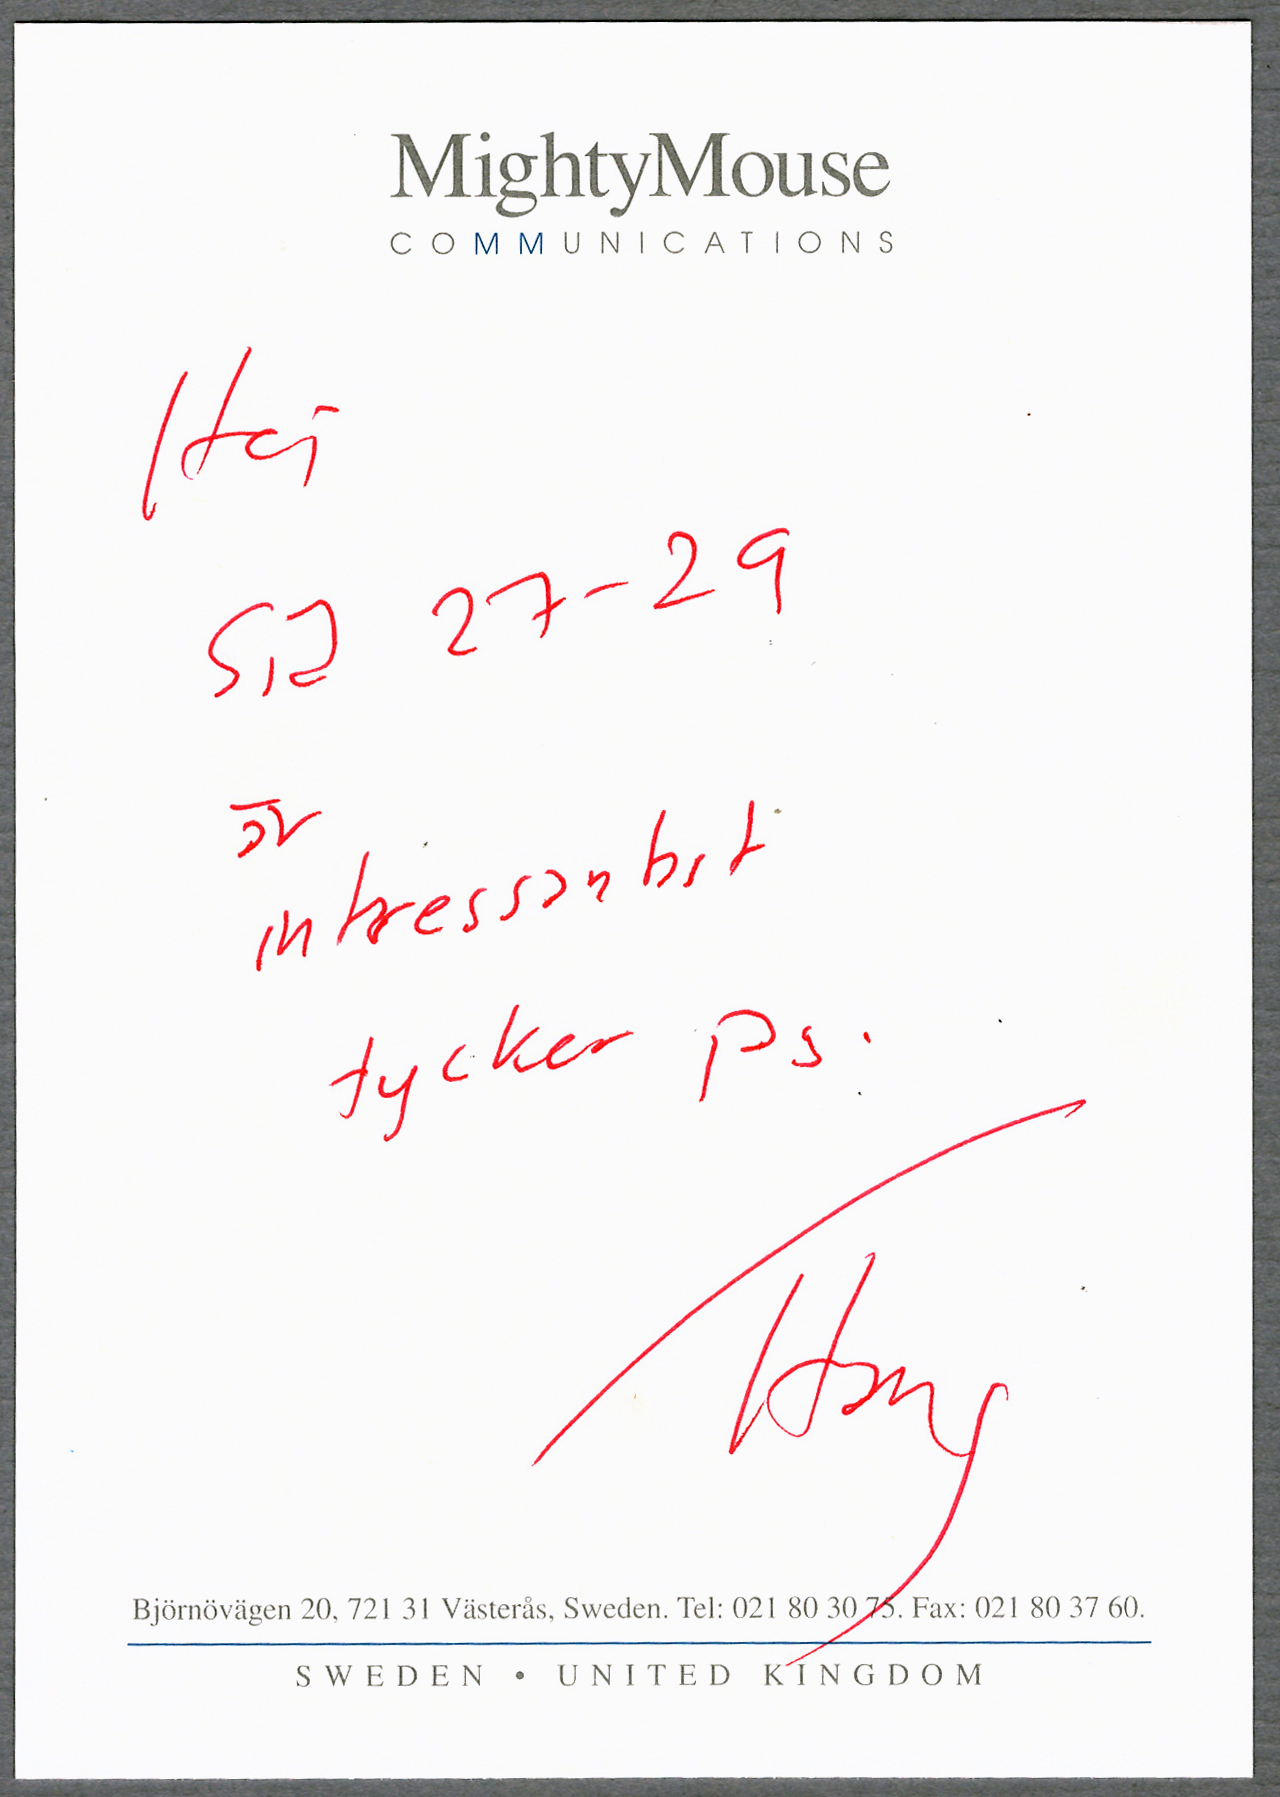 MightyMouse
COMMUNICATIONS
Hej
Sid 27-29
är
intressantast
tycker
Hans
Björnövägen 20, 721 31 Västerås, Sweden. Tel: 021 80 30 75. Fax: 021 80 37 60.
SWEDEN • UNITED KINGDOM